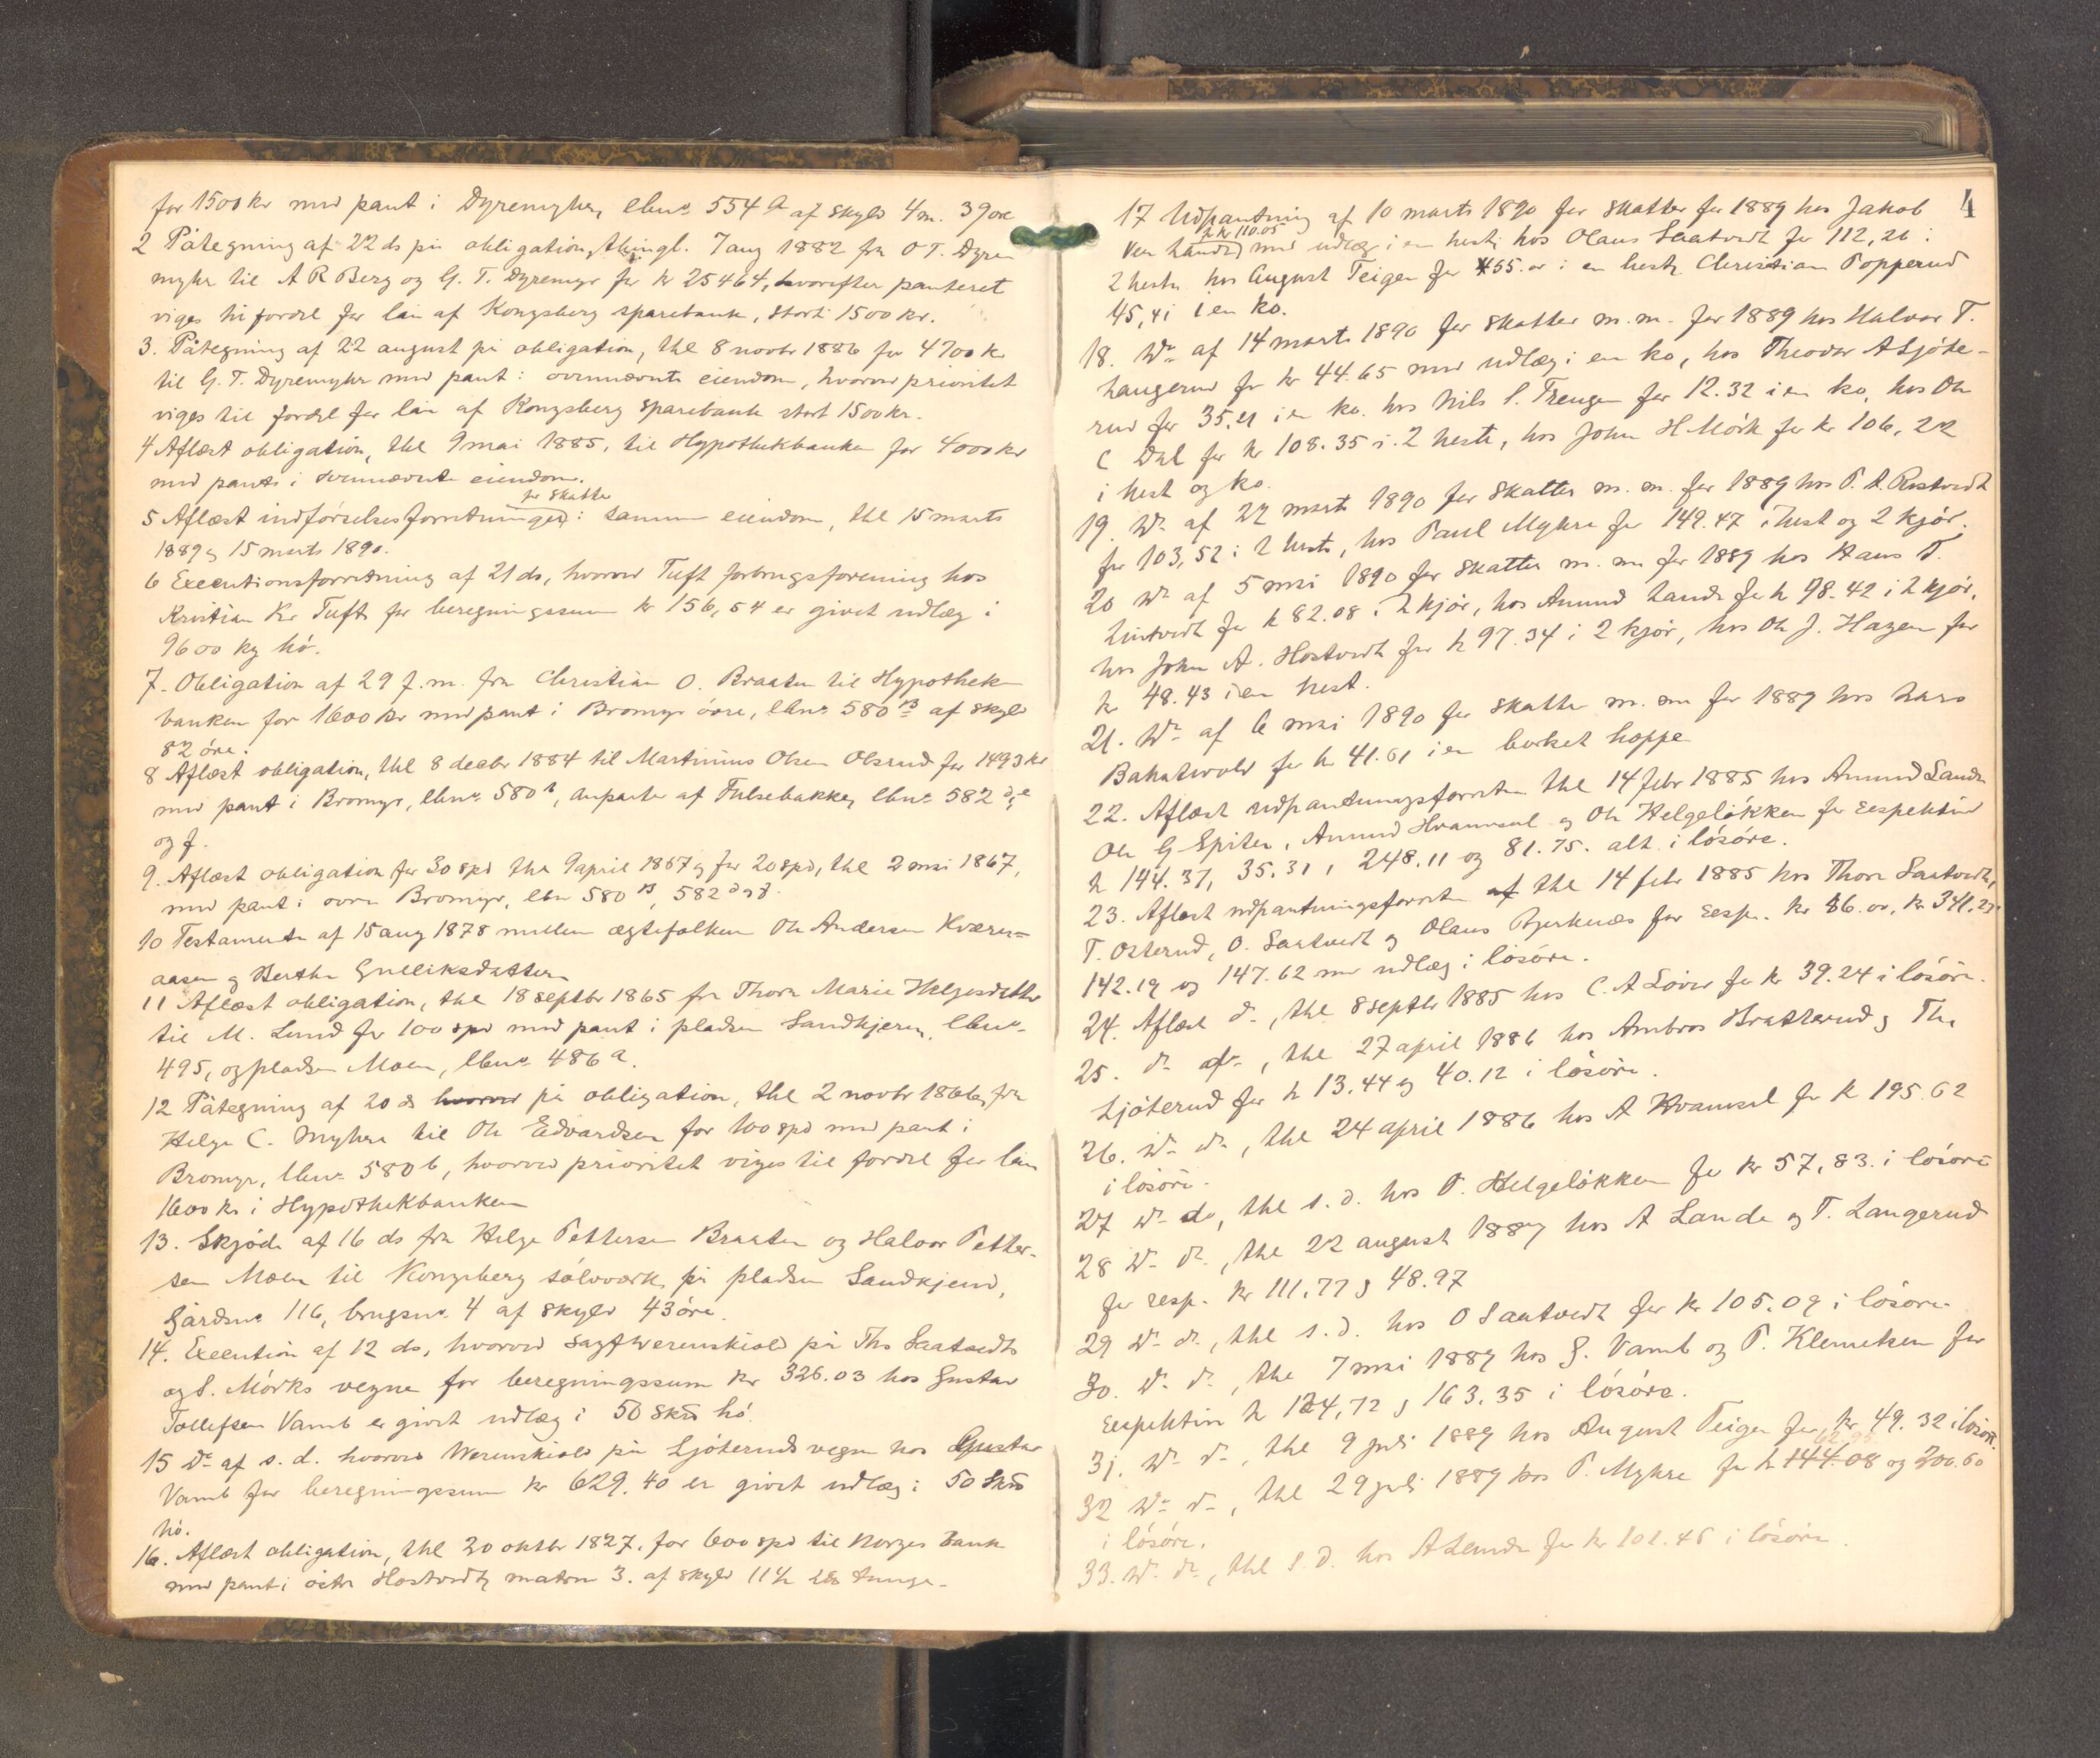 for 1500 kr med pant i Dyremyhr, lbnr. 554 a af skyld 4 m. 39 øre
2 Påtegning af 22 ds på obligation, thingl. 7 aug 1882 fra O T. Dyre
myhr til A R Berg og G. T. Dyremyr for kr 25464, hvorefter panteret
viges til fordel for lån af Kongsberg sparebank, stort 1500 kr.
3. Påtegning af 22 august på obligation, thl 8 novbr 1886 for 4700 kr
til G. T. Dyremyhr med pant i ovennævnte eiendom, hvorved prioritet
viges til fordel for lån af Kongsberg sparebank stort 1500 kr.
4 Aflæst obligation, thl 9 mai 1885, til Hypothekbanken for 4000 kr
med pant i ovennævnte eiendom.
for skatter
5 Aflæst indførselsforretninger i samme eiendom, thl 15 marts
1889 og 15 marts 1890.
6 Executionsforretning af 21 ds, hvorved Tuft forbrugsforening hos
Kristian Kr Tuft for beregningssum kr 156,54 er givet udlæg i
9600 kg hø.
7. Obligation af 29 f. m. fra Christian O. Braaten til Hypothek
banken for 1600 kr med pant i Bromyr øvre, lbnr. 580 b af skyld
82 øre.
8 Aflæst obligation, thl 8 decbr 1884 til Martinius Olsen Olsrud for 1493 kr
med pant i Bromyr, lbnr. 580 b, anparter af Fulsebakke, lbnr. 582 d, e
og f.
9. Aflæst obligation for 30 spd thl 9 april 1867 og for 20 spd, thl 2 mai 1867,
med pant i øvre Bromyr, lbn 580 b, 582 d og f.
10 Testamente af 15 aug 1878 mellem ægtefolkene Ole Andersen Kværn=
aasen og Berthe Gulliksdatter
11 Aflæst obligation, thl 18 septbr 1865 fra Thore Marie Helgesdatter
til M. Lund for 100 spd med pant i pladsen Sandkjern, lbnr.
495, og pladsen Moen, lbnr. 486 a.
12 Påtegning af 20 ds hvorved på obligation, thl 2 novbr 1866, fra
Helge C. Myhre til Ole Edvardsen for 100 spd med pant i
Bromyr, lbnr. 580 b, hvorved prioritet viges til fordel for lån
1600 kr i Hypothekbanken
13. Skjøde af 16 ds fra Helge Pettersen Braaten og Halvor Petter-
sen Moen til Kongsberg sølvværk på pladsen Sandkjern,
Gårdsnr 116, brugsnr. 4 af skyld 43 øre.
14. Execution af 12 ds, hvorved sagf Werenskiold på Ths Saatvedts
og S. Mørks vegne for beregningssum kr 326.03 hos Gustav
Tollefsen Vamb er givet udlæg i 50 skd hø.
15 Do af s. d. hvorved Werenskiold på Ljøteruds vegne hos Gustav
Vamb for beregningssum kr 629.40 er givet udlæg i 50 skd
hø.
16. Aflæst obligation, thl 30 oktbr 1827, for 600 spd til Norges Bank
med pant i østre Hostvedt, matrn 3. af skyld 11½ tunge.
4
17 Udpantning af 10 marts 1890 for skatter for 1889 hos Jakob
for kr 110.05
ven Lande med udlæg i en hest, hos Olaus Saatvedt for 112,26 i
2 heste hos August Teigen for 455.or i en hest, Christian Popperud
45,41 i en ko.
18. Do af 14 marts 1890 for skatter m. m. for 1889 hos Halvor T.
Langerud for kr 44.65 med udlæg i en ko, hos Theodor A Ljøte-
rud for 35.21 i en ko. hos Nils S. Trengen for 12.32 i en ko, hos Ole
C Dal for kr 108.35 i 2 heste, hos John H Mørk for kr 106,22
i hest og ko.
19. Do af 22 marts 1890 for skatter m. m. for 1889 hos P. A. Rostvedt
for 103,52 i 2 heste, hos Paul Myhre for 149.47 i hest og 2 kjør.
20 Do af 5 mai 1890 for skatter m. m. for 1889 hos Hans T.
Lintvedt for k 82.08 i 2 kjør, hos Amund Lande for k 98.42 i 2 kjør,
hos John A. Hostvedt for k 97.34 i 2 kjør, hos Ole J. Hagen for
kr 48.43 i en hest.
21. Do af 6 mai 1890 for skatter m. m. for 1889 hos Lars
Bakatvold for kr 41.61 i en borket hoppe
22. Aflæst udpantningsforretn thl 14 febr 1885 hos Amund Lande
Ole G Spiten, Amund Hvamsal og Ole Helgeløkken for respektive
k 144.37, 35.31, 248.11 og 81.75. alt i løsøre.
23. Aflæst udpantningsforretn af thl 14 febr 1885 hos Thore Saatvedt,
T. Osterud, O. Saatvedt og Olaus Bjerknæs for resp. kr 86.or, kr 341.23
142.19 og 147.62 med udlæg i løsøre.
24. Aflæst do, thl 8 septbr 1885 hos C. A Løver for kr 39.24 i løsøre.
25. do do, thl 27 april 1886 hos Ambros Bratterud og Th.
Ljøterud for k 13.44 og 40.12 i løsøre.
26. Do do, thl 24 april 1886 hos A Hvamsal for k 195.62
i løsøre.
27 Do do, thl s. d. hos O. Helgeløkken for kr 57,83. i løsøre
28 Do do, thl 22 august 1887 hos A Lande og T. Langerud
for resp. kr 111.77 og 48.97
29 Do do, thl s. d. hos O Saatvedt for kr 105.09 i løsøre
30. Do do, thl 7 mai 1889 hos G. Vamb og P. Klemetsen for
respektive k 124,72 og 163.35 i løsøre.
31. Do do, thl 9 juli 1889 hos August Teigen for kr 49.32 i løsøre.
32 Do do, thl 29 juli 1889 hos P. Myhre for k 144.08 og 200.60
i løsøre.
33. Do do, thl s. d. hos A Lande for kr 101.45 i løsøre.